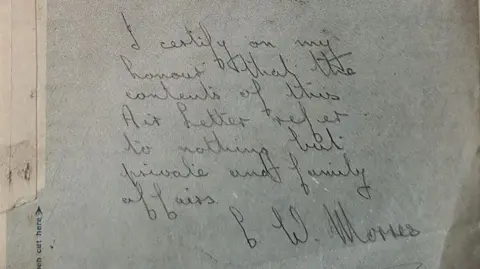 I certify on my
honour that the
contents of this
Air Letter refer
to nothing but
private and family
affairs.
E W. Morres
en cut here